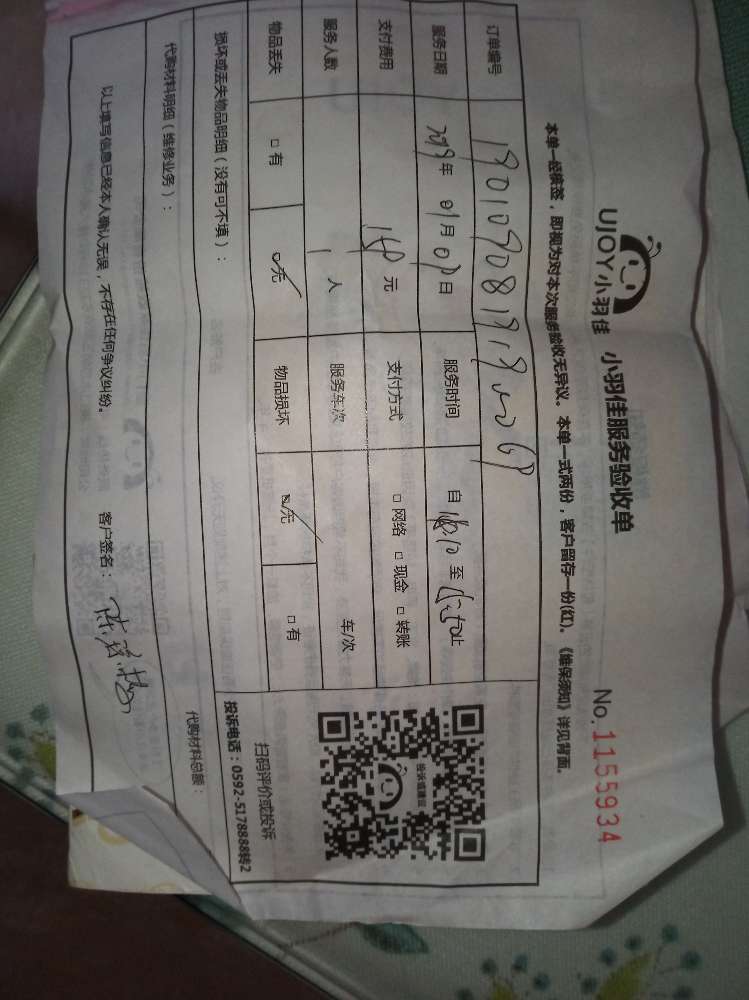 UJOY小羽佳 小羽佳服务验收单
No. 1155934
本单一经签签，即视为对本次服务验收无异议。本单一式两份，客户留存一份(红)。《维保须知》详见背面。
订单编号
服务日期 2019年 01月 09日 服务时间 自 至 止
支付费用 150 元 支付方式 □ 网络 □ 现金 □ 转账
服务人数 1 人 服务车次 车/次
物品丢失 □ 有 □ 无 物品损坏 □ 无 □ 有
扫码评价或投诉
投诉电话：0592-5178888转2
损坏或丢失物品明细（没有可不填）：
代购材料明细（维修业务）： 代购材料总额：
以上填写信息已经本人确认无误，不存在任何争议纠纷。 客户签名：